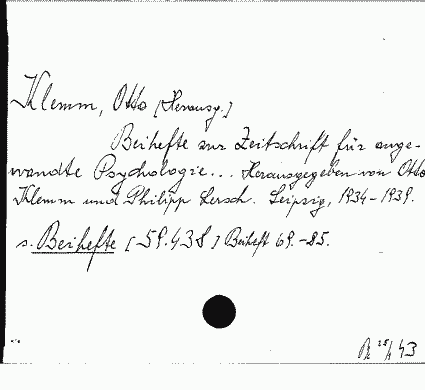 Klemm, Otto [Herausg.]
Beihefte zur Zeitschrift für ange-
wandte Psychologie... Herausgegeben von Otto
Klemm und Philipp Lersch. Leipzig, 1934-1939.
s. Beihefte [59.438] Beiheft 69.-85.
43